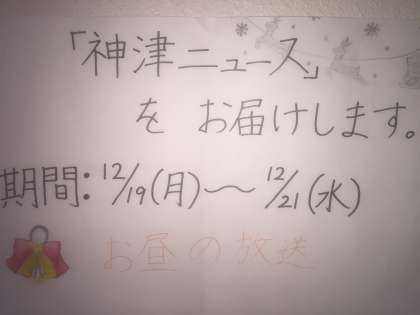 「神津ニュース」
を お届けします。
期間:12/19(月)〜12/21(水)
お昼の放送